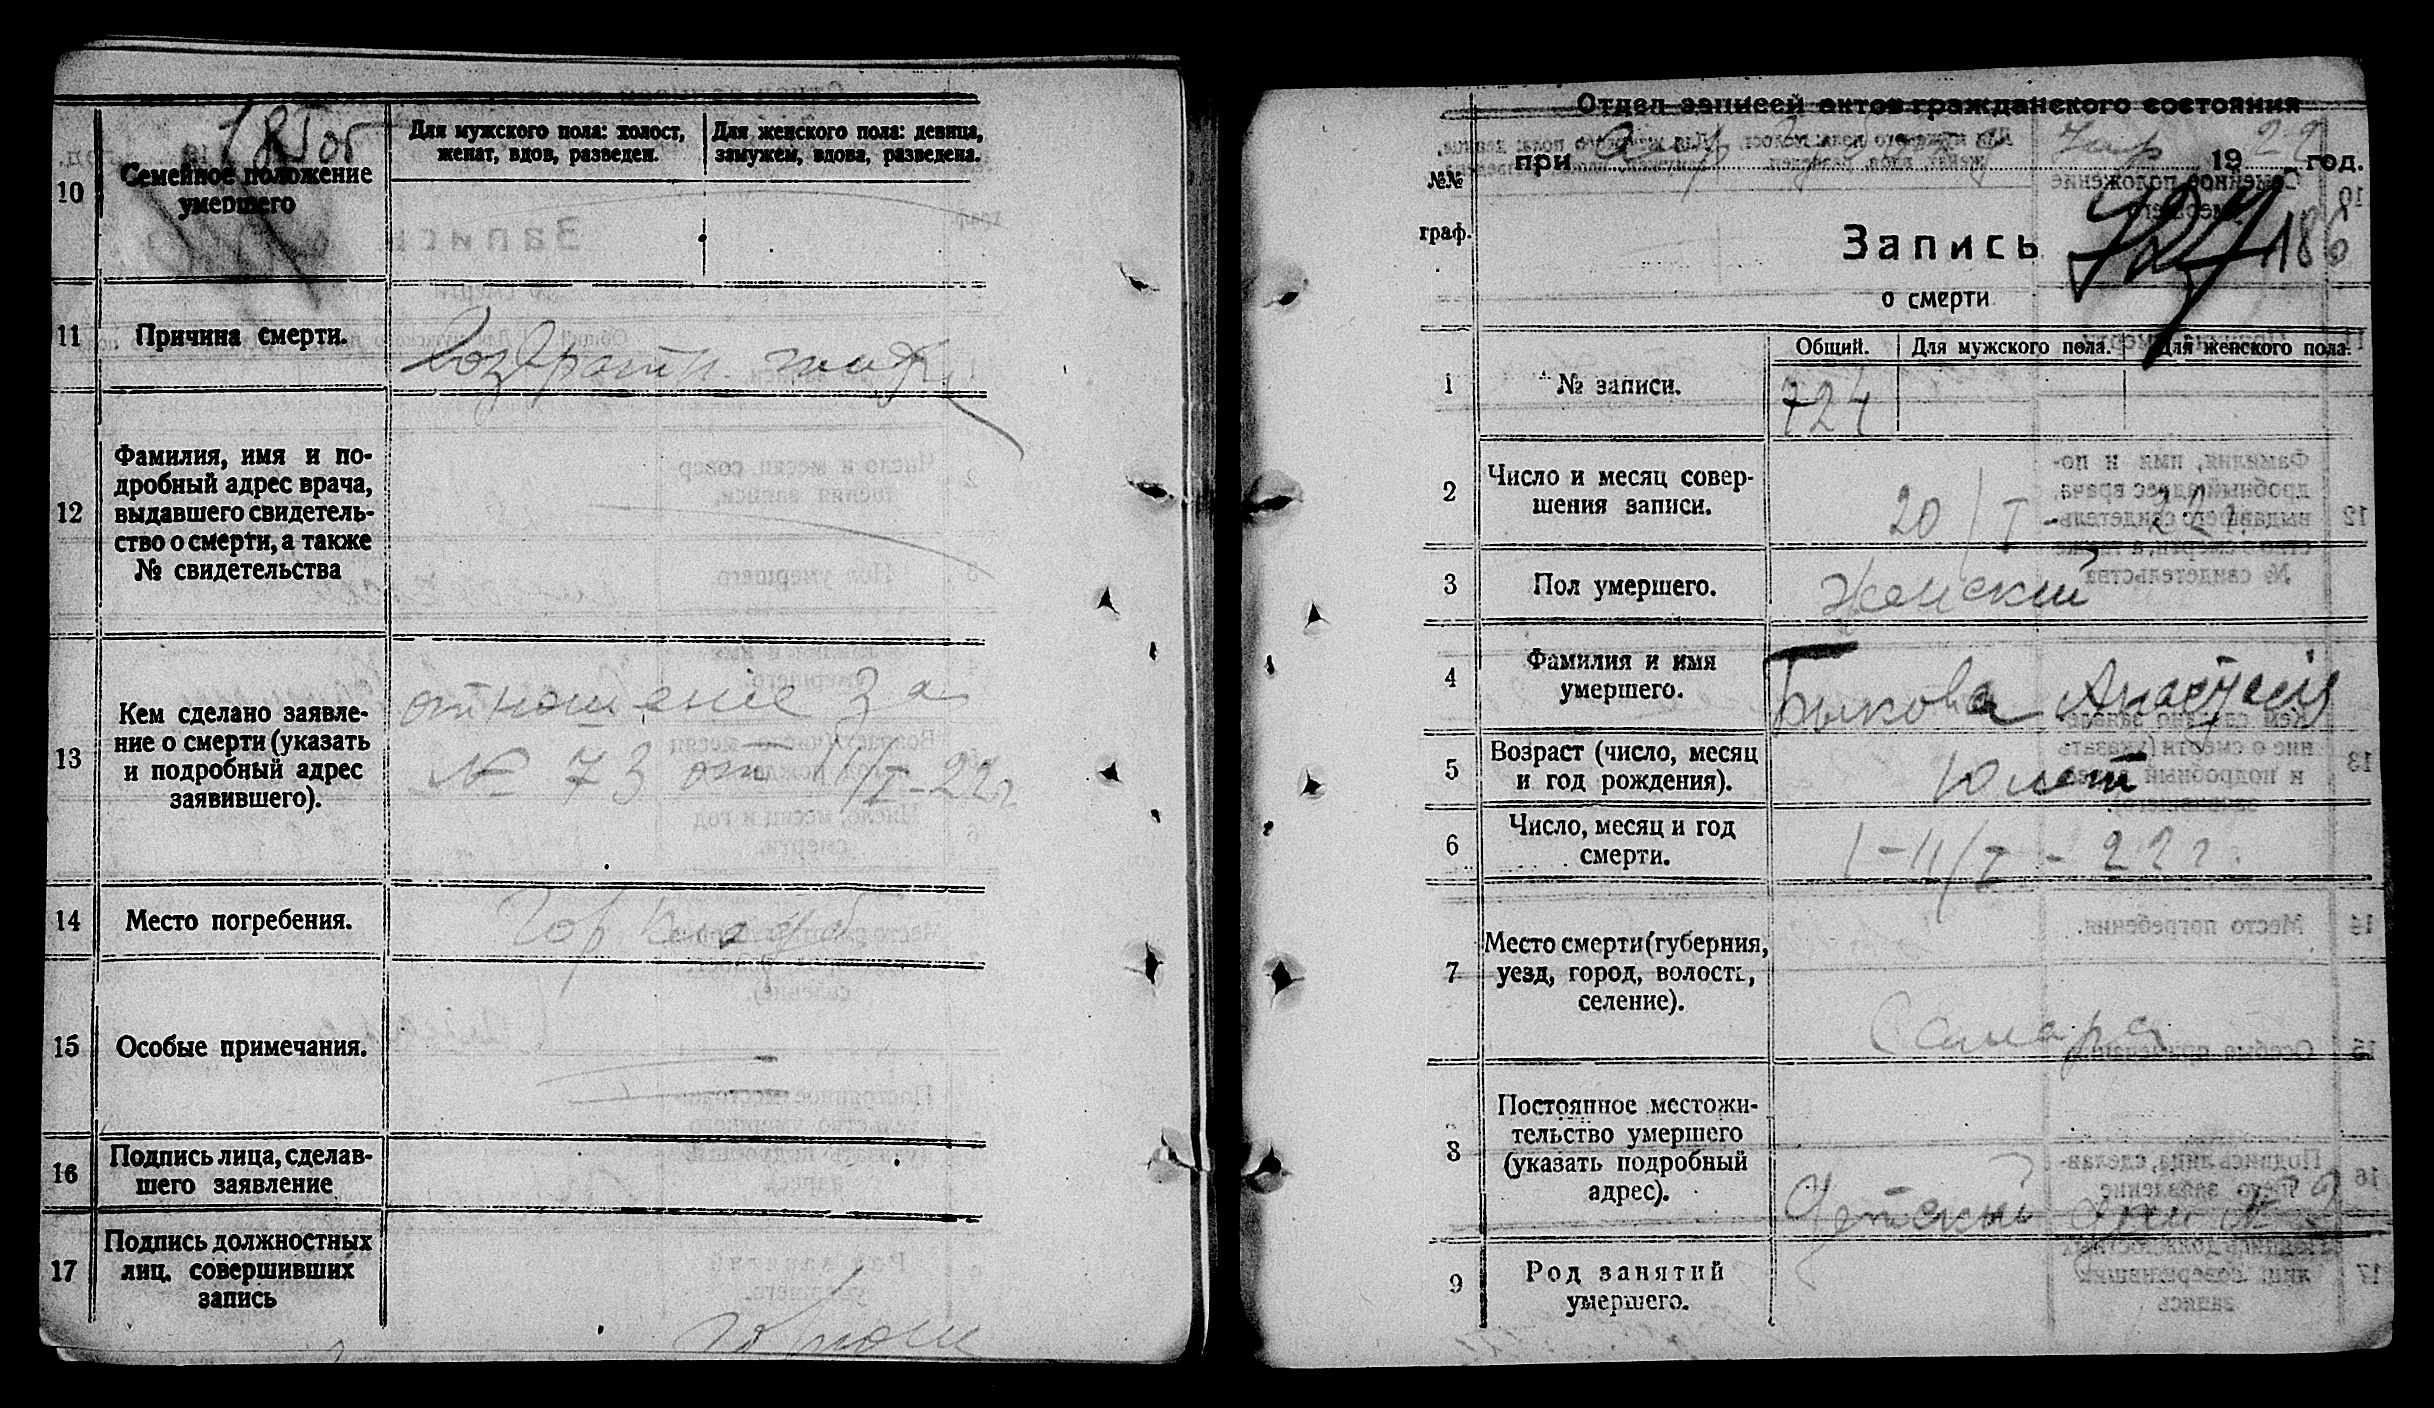 185об
10
Семейное положение
умершего
Для мужского пола: холост,
женат, вдов, разведен.
Для женского пола: девица,
замужем, вдова, разведена.
11
Причина смерти.
Возвратн. тиф
12
Фамилия, имя и по-
дробный адрес врача,
выдавшего свидетель-
ство о смерти, а также
№ свидетельства
13
Кем сделано заявле-
ние о смерти (указать
и подробный адрес
заявившего).
отношение За
№ 73 от 11/I-22г
14
Место погребения.
Гор кладб
15
Особые примечания.
16
Подпись лица, сделав-
шего заявление
17
Подпись должностных
лиц, совершивших
запись
Отдел записей актов гражданского состояния
при 19 22 год.
№№
граф.
Запись
о смерти
186
1
№ записи.
Общий.
Для мужского пола.
Для женского пола.
724
2
Число и месяц совер-
шения записи.
20/I-22г.
3
Пол умершего.
Женский
4
Фамилия и имя
умершего.
Быкова Анастасия
5
Возраст (число, месяц
и год рождения).
10 лет
6
Число, месяц и год
смерти.
1-11/I-22г.
7
Место смерти (губерния,
уезд, город, волость,
селение).
Самара
8
Постоянное местожи-
тельство умершего
(указать подробный
адрес).
Детский дом №
9
Род занятий
умершего.